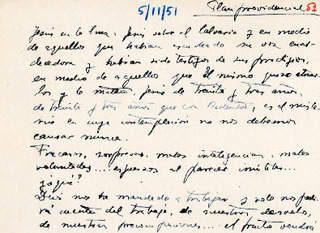 5/11/51 Plan providencial 52
Jesús en la Cruz. Jesús sobre el Calvario y en medio
de aquellos que habían escuchado su voz
y habían sido testigos de sus prodigios,
en medio de aquellos que Él mismo quiso
los y lo matan. Jesús de treinta y tres años,
de treinta y tres años que son Redentores, es el miste-
rio en cuya contemplación no nos debemos
cansar nunca.
Fracasos, sorpresas, malas inteligencias, malas
voluntades... esfuerzos al parecer inútiles...
¿y qué?
Dios nos ha mandado a trabajar y solo nos pedi-
rá cuentas del trabajo, de nuestros desvelos,
de nuestras preocupaciones... el fruto vendrá